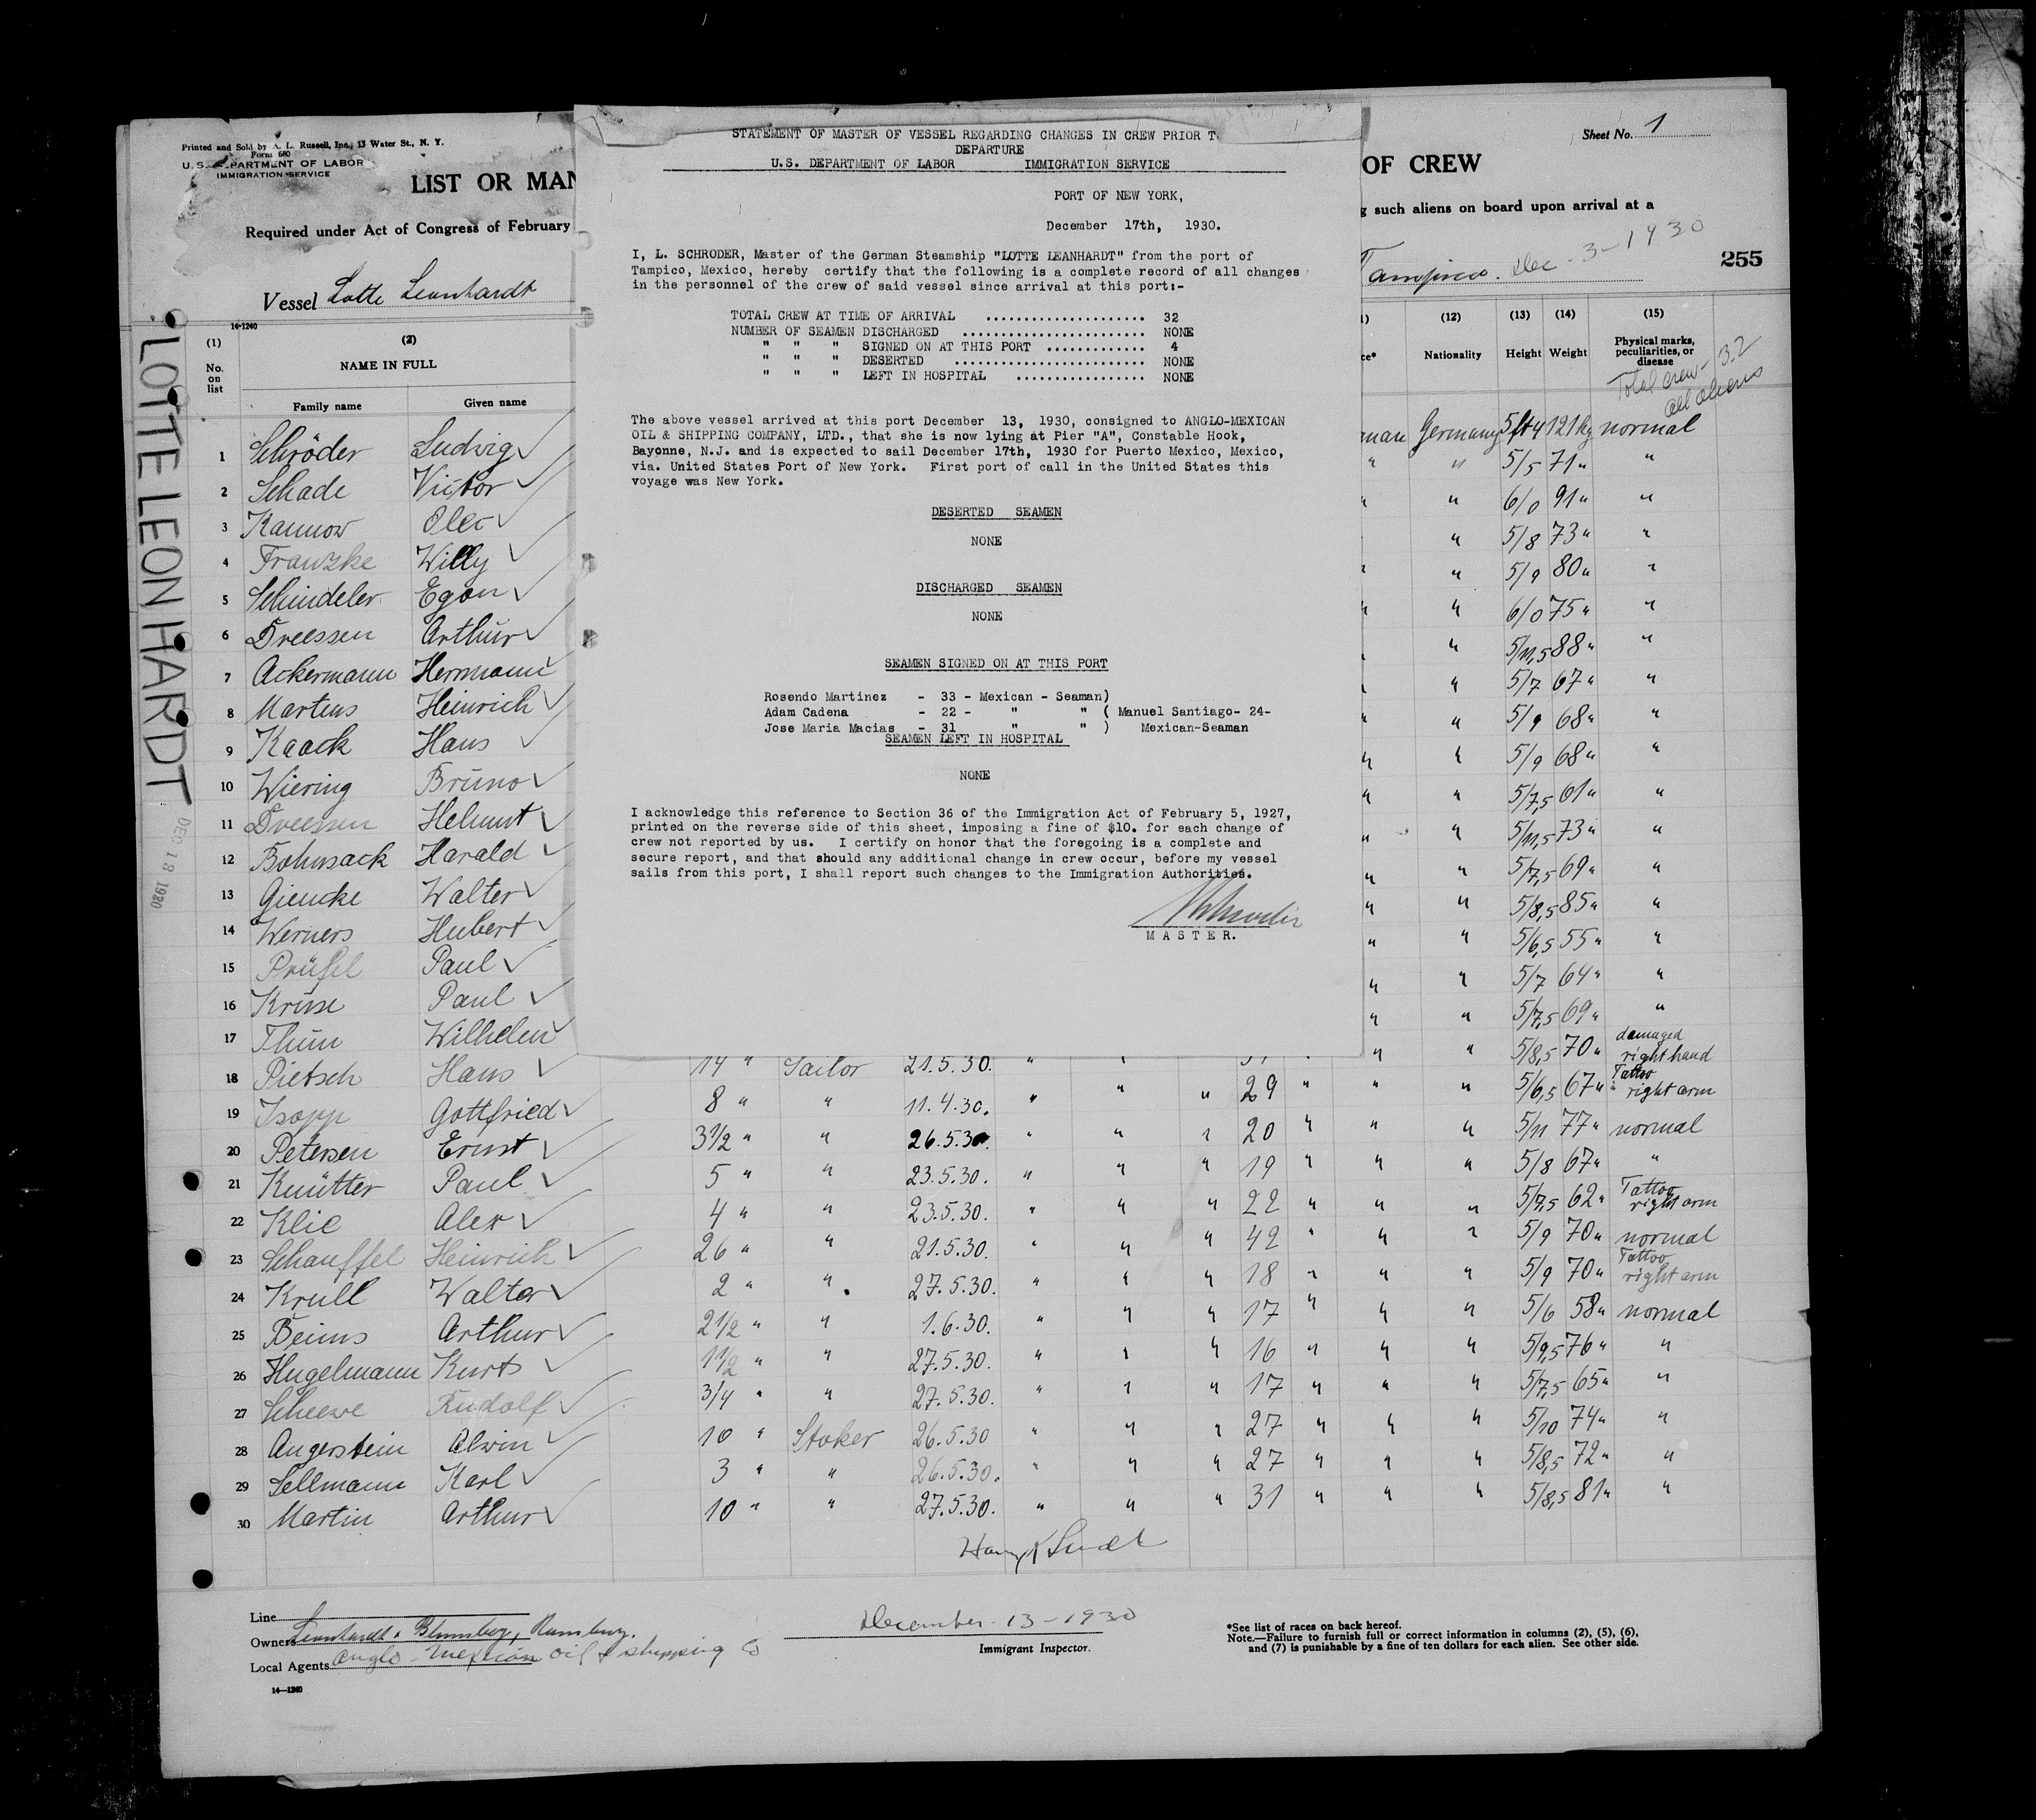 Printed and Sold by A. L. Russell, Inc., 13 Water St., N. Y.
Form 680
U. S. DEPARTMENT OF LABOR
IMMIGRATION SERVICE
LIST OR MAN
Required under Act of Congress of February
Vessel Lotte Leonhardt
14-1240
(1) (2)
No. on list
NAME IN FULL
Family name Given name
1 Schröder Ludwig
2 Schade Victor
3 Kannow
4 Franzke Willy
5 Schindeler Egon
6 Dreessen Arthur
7 Ackermann Hermann
8 Martens Heinrich
9 Kaack Hans
10 Wiering Bruno
11 Dreessen Helmut
12 Bohnsack Harald
13 Giencke Walter
14 Werners Hubert
15 Paul
16 Kruse Paul
17 Thum Wilhelm
18 Pietsch Hans
19 Isopp Gottfried
20 Petersen Ernst
21 Knütter Paul
22 Klie Alex
23 Schauffel Heinrich
24 Krull Walter
25 Beims Arthur
26 Hugelmann Kurt
27 Scheewe Rudolf
28 Angerstein Alwin
29 Sellmann Karl
30 Martin Arthur
LOTTE LEONHARDT
DEC 13 1930
STATEMENT OF MASTER OF VESSEL REGARDING CHANGES IN CREW PRIOR T
DEPARTURE
U.S. DEPARTMENT OF LABOR IMMIGRATION SERVICE
PORT OF NEW YORK,
December 17th, 1930.
I, L. SCHRODER, Master of the German Steamship "LOTTE LEANHARDT" from the port of
Tampico, Mexico, hereby certify that the following is a complete record of all changes
in the personnel of the crew of said vessel since arrival at this port:-
TOTAL CREW AT TIME OF ARRIVAL ...................... 32
NUMBER OF SEAMEN DISCHARGED ......................... NONE
" " " SIGNED ON AT THIS PORT ............. 4
" " " DESERTED .......................... NONE
" " " LEFT IN HOSPITAL .................. NONE
The above vessel arrived at this port December 13, 1930, consigned to ANGLO-MEXICAN
OIL & SHIPPING COMPANY, LTD., that she is now lying at Pier "A", Constable Hook,
Bayonne, N.J. and is expected to sail December 17th, 1930 for Puerto Mexico, Mexico,
via. United States Port of New York. First port of call in the United States this
voyage was New York.
DESERTED SEAMEN
NONE
DISCHARGED SEAMEN
NONE
SEAMEN SIGNED ON AT THIS PORT
Rosendo Martinez - 33 - Mexican - Seaman)
Adam Cadena - 22 - " " ( Manuel Santiago- 24-
Jose Maria Macias - 31 " " ) Mexican-Seaman
SEAMEN LEFT IN HOSPITAL
NONE
I acknowledge this reference to Section 36 of the Immigration Act of February 5, 1927,
printed on the reverse side of this sheet, imposing a fine of $10. for each change of
crew not reported by us. I certify on honor that the foregoing is a complete and
secure report, and that should any additional change in crew occur, before my vessel
sails from this port, I shall report such changes to the Immigration Authorities.
MASTER.
Sheet No. 1
OF CREW
g such aliens on board upon arrival at a
Tampico. Dec - 3-1930
255
(12) (13) (14) (15)
ce* Nationality Height Weight Physical marks, peculiarities, or disease
Total crew - 32
all aliens
man Germany 5ft4 121kg normal
" " 5/5 71" "
" " 6/0 91" "
" 5/8 73" "
" 5/9 80" "
" " 6/0 75" "
" 5/11,5 88" "
" 5/7 67" "
" " 5/9 68" "
" " 5/9 68" "
" " 5/7,5 61" "
" " 5/11,5 73" "
" " 5/7,5 69" "
" " 5/8,5 85" "
" " 5/6,5 55" "
" " 5/7 64" "
" " 5/7,5 69" "
14 " Sailor 21.5.30. " " " " 5/8,5 70" damaged right hand
8 " " 11.4.30. " " " 29 " " " 5/6,5 67" Tattoo right arm
3 1/2 " " 26.5.30. " " " 20 " " " 5/11 77" normal
5 " 23.5.30. " " " 19 " " " 5/8 67" "
4 " " 23.5.30. " " " 22 " " " 5/7,5 62" Tattoo right arm
26 " " 21.5.30. " " " 42 " " " 5/9 70" normal
2 " " 27.5.30. " " " 18 " " " 5/9 70" Tattoo right arm
2 1/2 " " 1.6.30. " " " 17 " " " 5/6 58" normal
1 1/2 " " 27.5.30. " " " 16 " " " 5/9,5 76" "
3/4 " " 27.5.30. " " " 17 " " " 5/7,5 65" "
10 " Stoker 26.5.30 " " " 27 " " " 5/10 74" "
3 " " 26.5.30. " " " 27 " " " 5/8,5 72" "
10 " " 27.5.30. " " " 31 " " " 5/8,5 81" "
Line
Owners Leonhardt & Blumberg, Hamburg.
Local Agents Anglo-Mexican oil & shipping Co
14-1240
December-13-1930
Immigrant Inspector.
*See list of races on back hereof.
Note.—Failure to furnish full or correct information in columns (2), (5), (6),
and (7) is punishable by a fine of ten dollars for each alien. See other side.